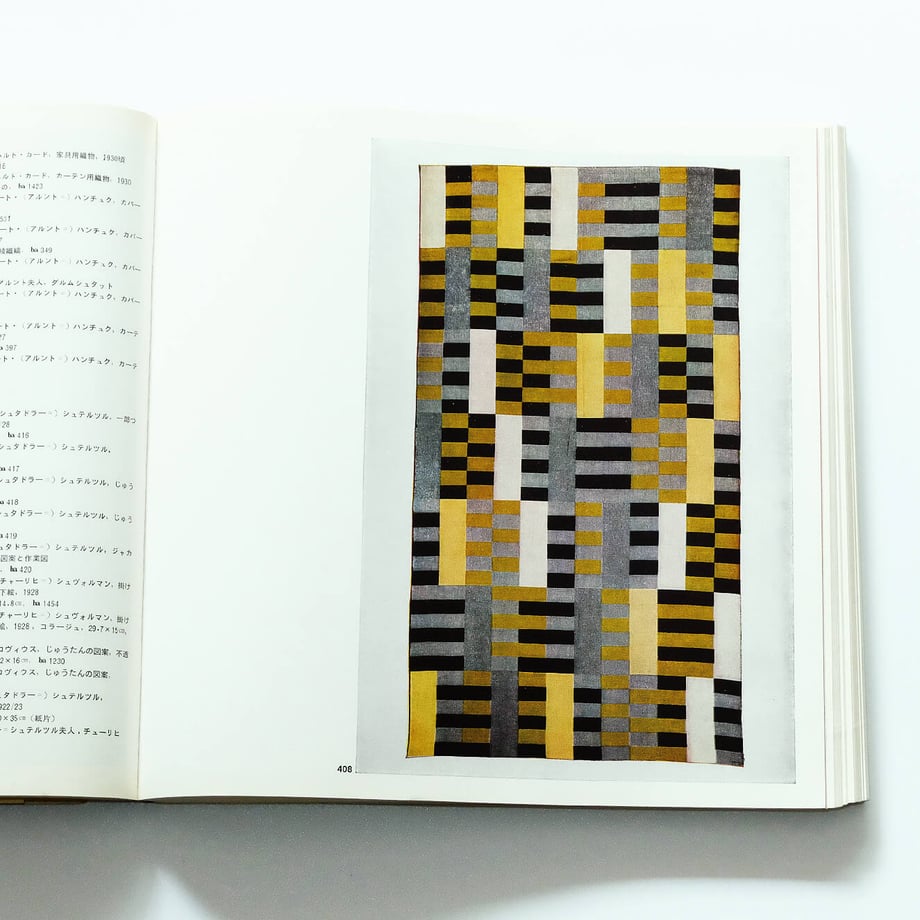 ルト・カード, 家具用織物, 1930頃
ルト・カード, カーテン用織物, 1930
の, ha 1423
ート・（アルント＝）ハンチュク, カバー
551
ート・（アルント＝）ハンチュク, カバー
7
綾織縞, ha 349
ート・（アルント＝）ハンチュク, カバー
アルント夫人, ダルムシュタット
ート・（アルント＝）ハンチュク, カバー
ート・（アルント＝）ハンチュク, カーテ
27
a 397
ート・（アルント＝）ハンチュク, カーテ
シュタドラー＝）シュテルツル, 一部つ
28
ha 416
シュタドラー＝）シュテルツル,
ha 417
シュタドラー＝）シュテルツル, じゅう
a 418
シュタドラー＝）シュテルツル, じゅう
a 419
シュタドラー＝）シュテルツル, ジャカ
図案と作業図
ha 420
チャーリヒ＝）シュヴォルマン, 掛け
下絵, 1928
14.8cm, ha 1454
チャーリヒ＝）シュヴォルマン, 掛け
絵, 1928, コラージュ, 29.7×15cm,
コヴィウス, じゅうたんの図案, 不透
2×16cm, ha 1230
コヴィウス, じゅうたんの図案,
ュタドラー＝）シュテルツル,
922/23
0×35cm（紙片）
＝シュテルツル夫人, チューリヒ
408